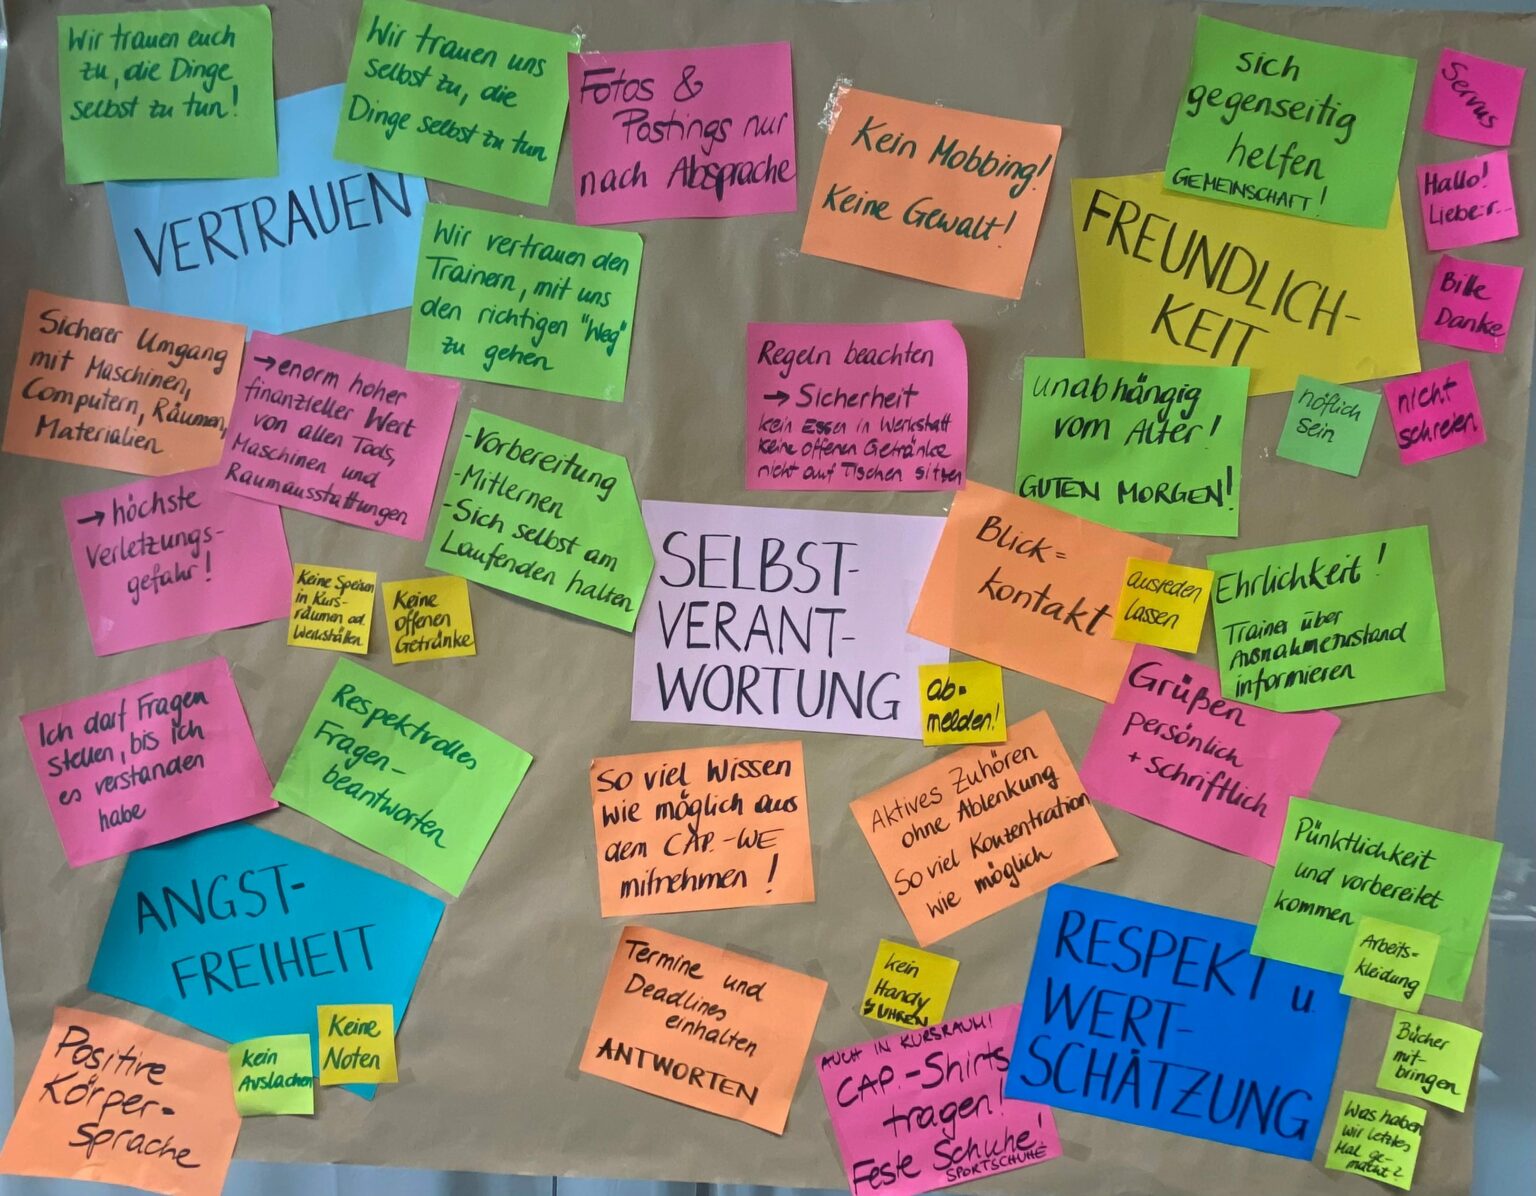 Wir trauen euch
zu, die Dinge
selbst zu tun!
Wir trauen uns
selbst zu, die
Dinge selbst zu tun
VERTRAUEN
Wir vertrauen den
Trainern, mit uns
den richtigen "Weg"
zu gehen
Fotos &
Postings nur
nach Absprache
Kein Mobbing!
Keine Gewalt!
sich
gegenseitig
helfen
GEMEINSCHAFT!
Servus
Hallo!
Liebe:r...
Bitte
Danke
FREUNDLICH-
KEIT
höflich
sein
nicht
schreien
unabhängig
vom Alter!
GUTEN MORGEN!
Sicherer Umgang
mit Maschinen,
Computern, Räumen,
Materialien
→ enorm hoher
finanzieller Wert
von allen Tools,
Maschinen und
Raumausstattungen
→ höchste
Verletzungs-
gefahr!
Keine Speisen
in Kurs-
räumen od.
Werkstätten
Keine
offenen
Getränke
-Vorbereitung
-Mitlernen
-Sich selbst am
Laufenden halten
Regeln beachten
→ Sicherheit
kein Essen in Werkstatt
keine offenen Getränke
nicht auf Tischen sitzen
SELBST-
VERANT-
WORTUNG
ab-
melden!
Blick=
kontakt
ausreden
lassen
Ehrlichkeit!
Trainer über
Ausnahmezustand
informieren
Grüßen
persönlich
+ schriftlich
Ich darf Fragen
stellen, bis ich
es verstanden
habe
Respektvolles
Fragen-
beantworten
ANGST-
FREIHEIT
Positive
Körper-
sprache
kein
Auslachen
Keine
Noten
So viel Wissen
wie möglich aus
dem CAP.-WE
mitnehmen!
Aktives Zuhören
ohne Ablenkung
So viel Konzentration
wie möglich
Termine und
Deadlines
einhalten
ANTWORTEN
kein
Handy
UHREN
AUCH IN KURSRAUM!
CAP.-Shirts
tragen!
Feste Schuhe!
SPORTSCHUHE
RESPEKT u.
WERT-
SCHÄTZUNG
Pünktlichkeit
und vorbereitet
kommen
Arbeits-
kleidung
Bücher
mit-
bringen
Was haben
wir letztes
Mal ge-
macht?